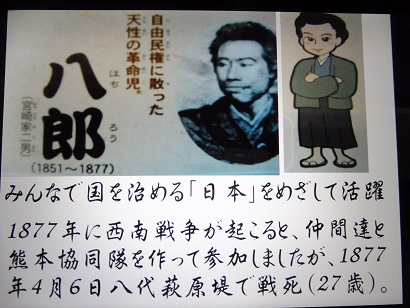 自由民権に散った
天性の革命児。
八郎
はち
ろう
(宮崎家二男)
(1851～1877)
みんなで国を治める「日本」をめざして活躍
1877年に西南戦争が起こると、仲間達と
熊本協同隊を作って参加しましたが、1877
年4月6日八代萩原堤で戦死(27歳)。